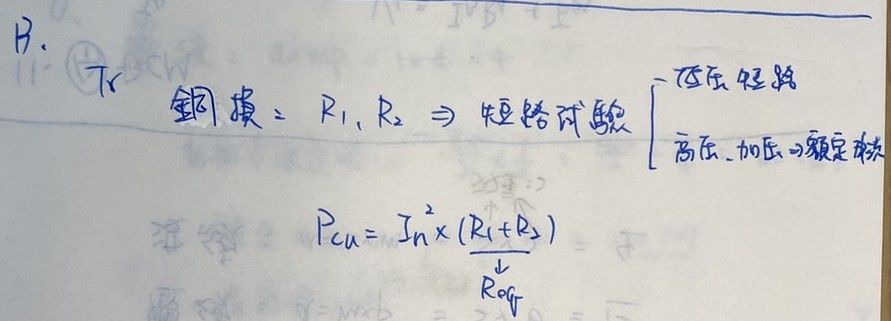 B.
Tr
銅損: R1、R2 ⇒ 短路試驗
低压短路
高压、加压⇒額定電流
Pcu = In² × (R1+R2)
↓
Req